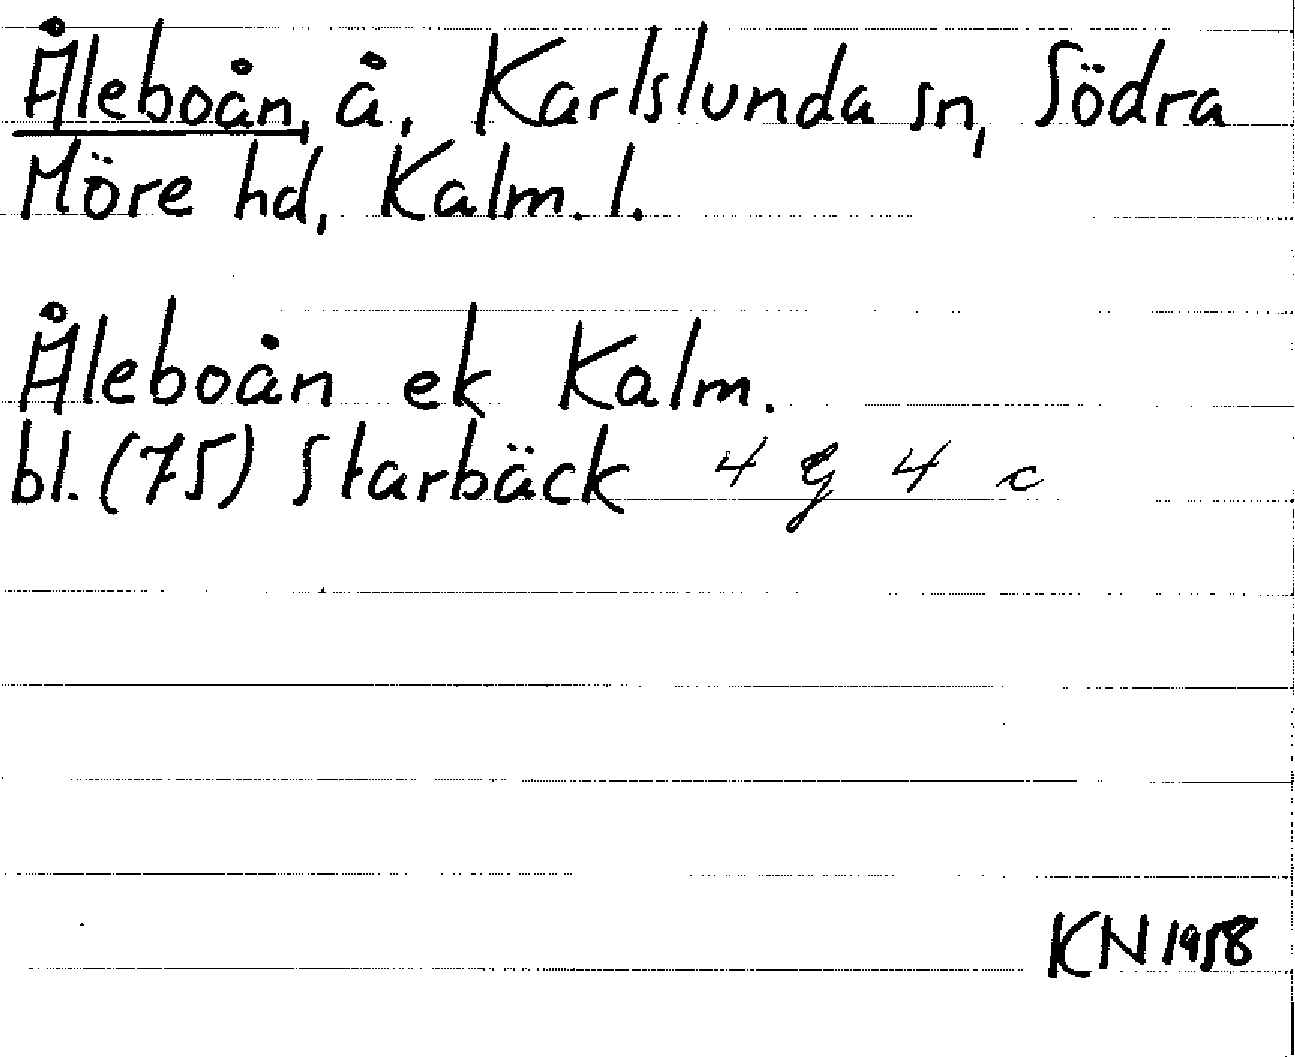 Åleboån, å, Karlslunda sn, Södra
Möre hd, Kalm. l.
Åleboån ek Kalm.
bl. (75) Starbäck 4 G 4 c
KN 1958